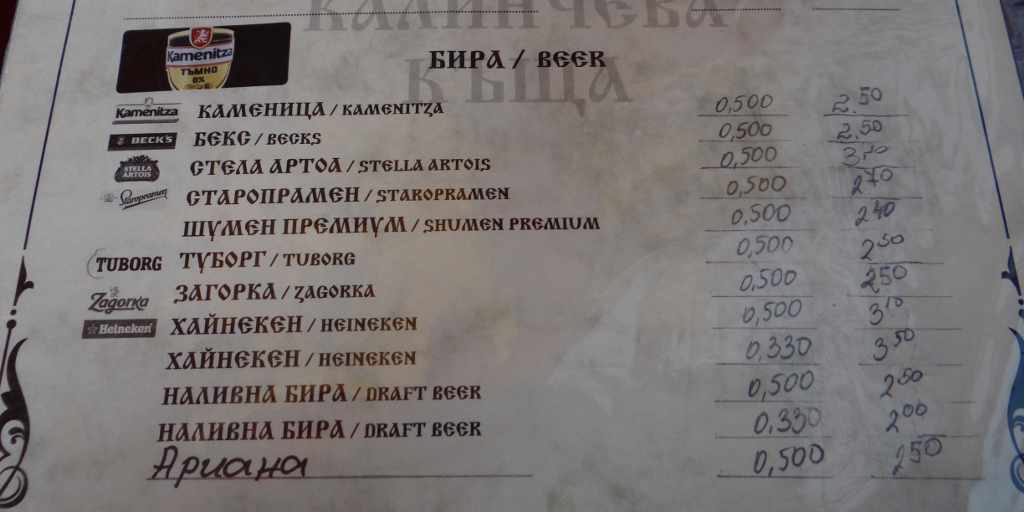 КАЛИНЧЕВА
КЪЩА
Kamenitza
ТЪМНО
6%
БИРА / BEER
Kamenitza КАМЕНИЦА / KAMENITZA 0,500 2.50
BECK'S БЕКС / BECKS 0,500 2,50
STELLA ARTOIS СТЕЛА АРТОА / STELLA ARTOIS 0,500 3,10
Staropramen СТАРОПРАМЕН / STAROPRAMEN 0,500 2 70
ШУМЕН ПРЕМИУМ / SHUMEN PREMIUM 0,500 2 40
TUBORG ТУБОРГ / TUBORG 0,500 2 50
Zagorka ЗАГОРКА / ZAGORKA 0,500 2 50
Heineken ХАЙНЕКЕН / HEINEKEN 0,500 3 10
ХАЙНЕКЕН / HEINEKEN 0,330 3 50
НАЛИВНА БИРА / DRAFT BEER 0,500 2 50
НАЛИВНА БИРА / DRAFT BEER 0,330 2 00
Ариана 0,500 2 50